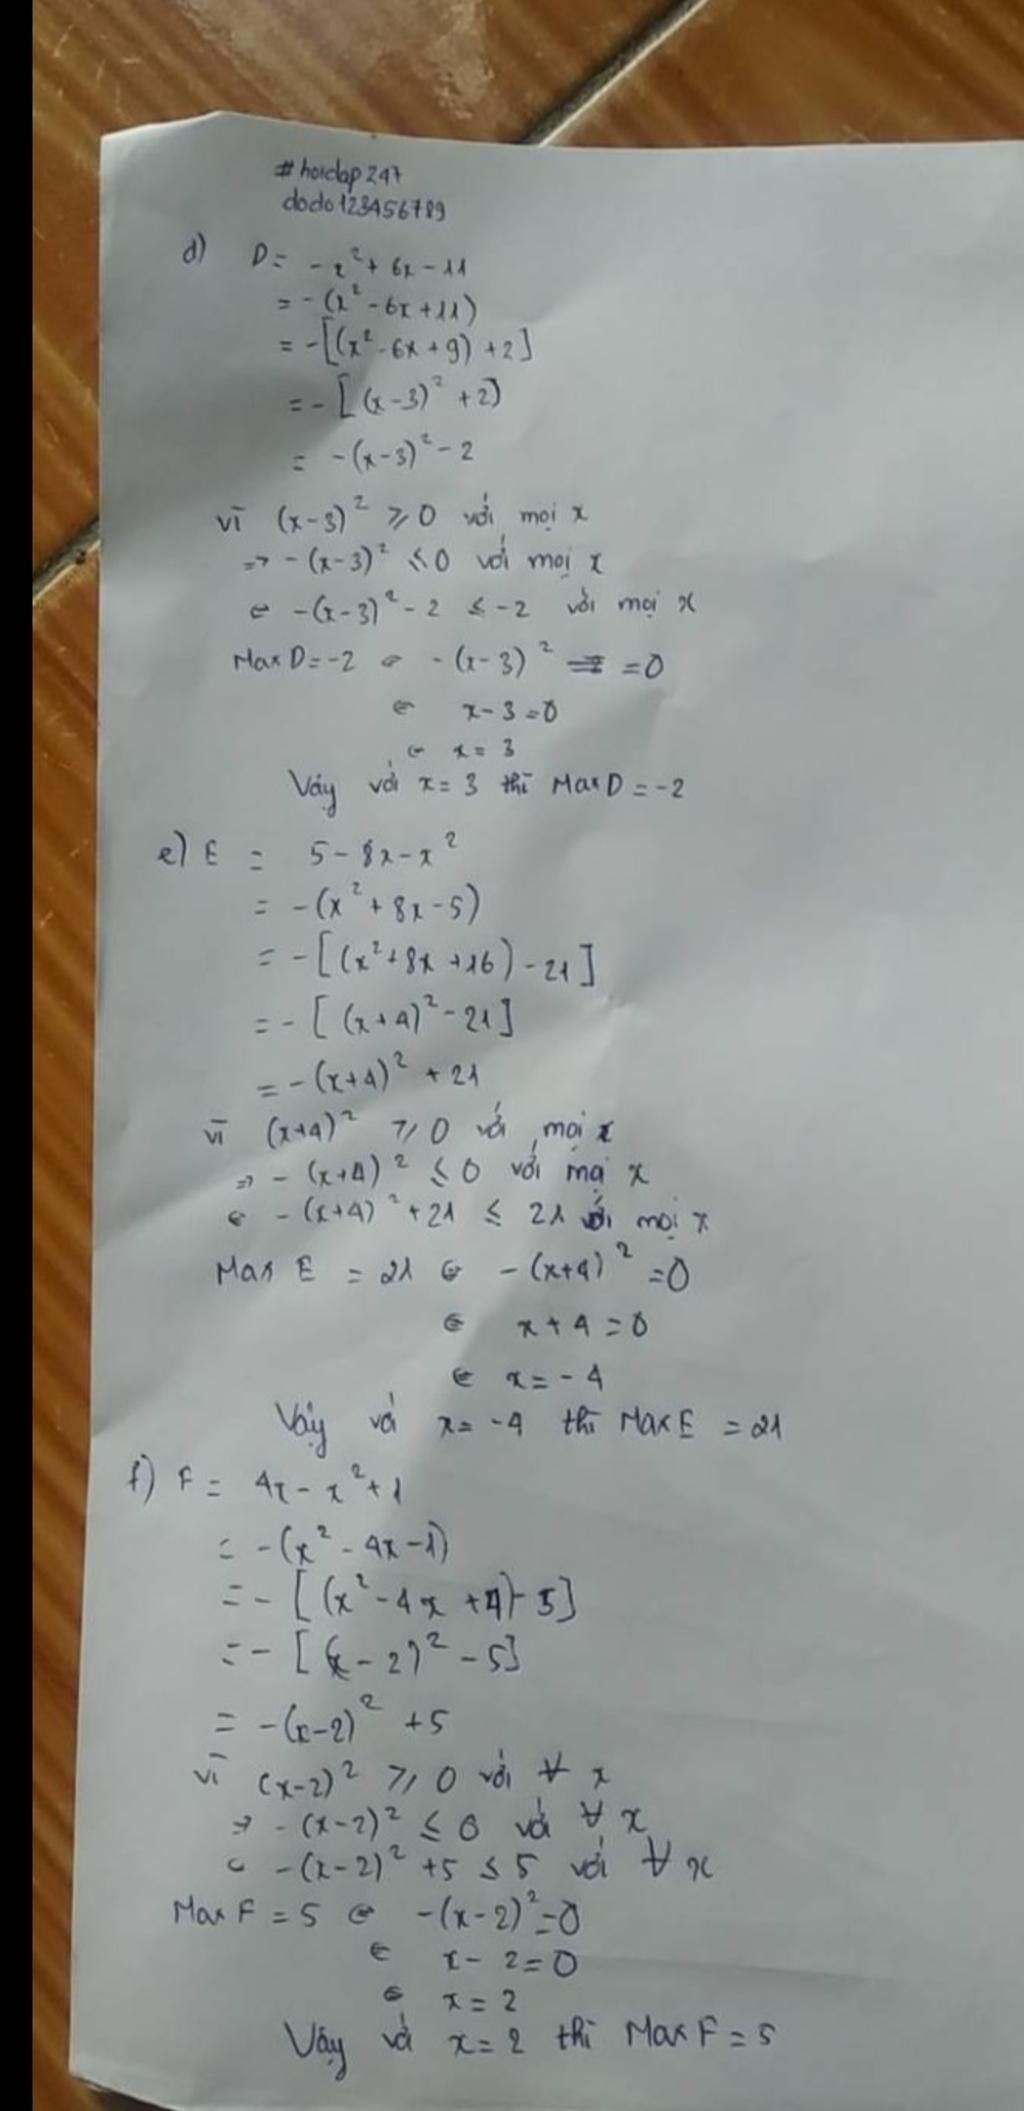 #hoidap247
dodo123456789
d) D = -x² + 6x - 11
= -(x² - 6x + 11)
= -[(x² - 6x + 9) + 2]
= -[(x-3)² + 2]
= -(x-3)² - 2
vì (x-3)² ≥ 0 với mọi x
=> -(x-3)² ≤ 0 với mọi x
⇔ -(x-3)² - 2 ≤ -2 với mọi x
Max D = -2 ⇔ -(x-3)² = 0
⇔ x - 3 = 0
⇔ x = 3
Vậy với x = 3 thì Max D = -2
e) E = 5 - 8x - x²
= -(x² + 8x - 5)
= -[(x² + 8x + 16) - 21]
= -[(x+4)² - 21]
= -(x+4)² + 21
vì (x+4)² ≥ 0 với mọi x
=> -(x+4)² ≤ 0 với mọi x
⇔ -(x+4)² + 21 ≤ 21 với mọi x
Max E = 21 ⇔ -(x+4)² = 0
⇔ x + 4 = 0
⇔ x = -4
Vậy với x = -4 thì Max E = 21
f) F = 4x - x² + 1
= -(x² - 4x - 1)
= -[(x² - 4x + 4) - 5]
= -[(x-2)² - 5]
= -(x-2)² + 5
vì (x-2)² ≥ 0 với ∀ x
=> -(x-2)² ≤ 0 với ∀ x
⇔ -(x-2)² + 5 ≤ 5 với ∀ x
Max F = 5 ⇔ -(x-2)² = 0
⇔ x - 2 = 0
⇔ x = 2
Vậy với x = 2 thì Max F = 5